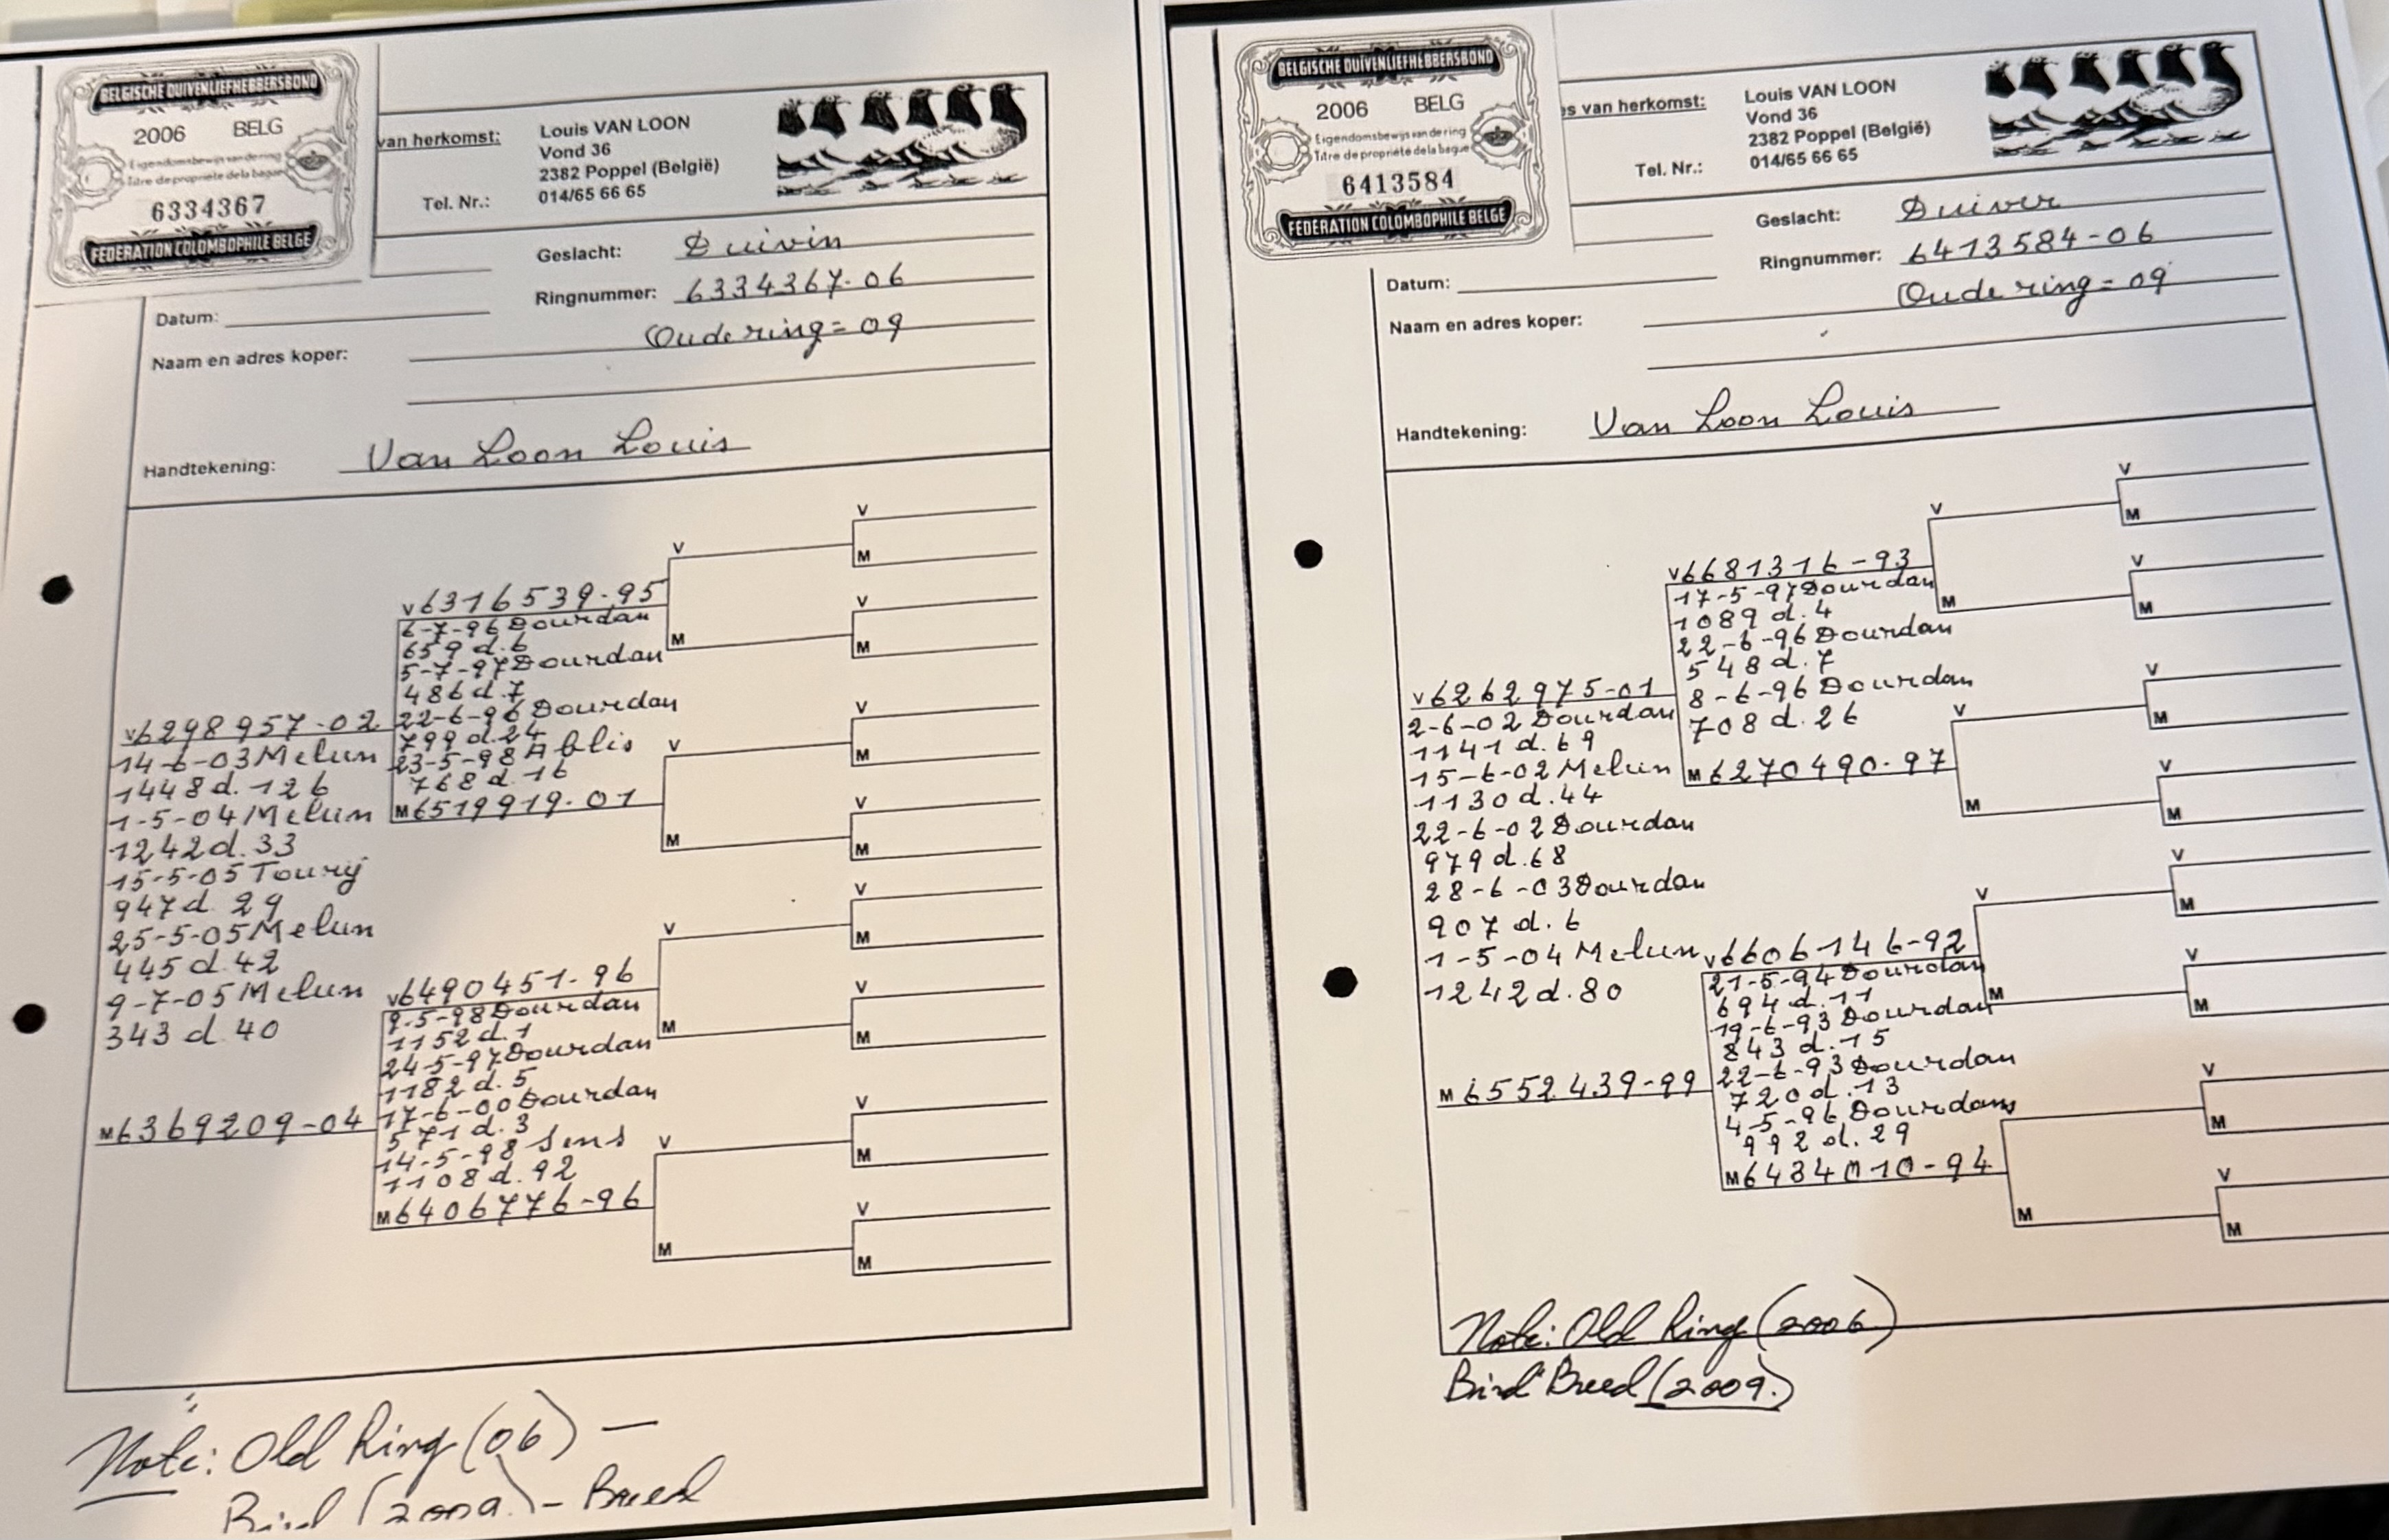 BELGISCHE DUIVENLIEFHEBBERSBOND
2006 BELG
Eigendomsbewijs van de ring
Titre de propriété de la bague
6334367
FEDERATION COLOMBOPHILE BELGE
van herkomst:
Louis VAN LOON
Vond 36
2382 Poppel (België)
Tel. Nr.: 014/65 66 65
Geslacht: Duivin
Ringnummer: 6334367-06
Datum:
Oude ring = 09
Naam en adres koper:
Handtekening: Van Loon Louis
V
M
V
V 6316539-95
6-7-96 Dourdan
659 d. 6
5-7-97 Dourdan
486 d. 7
22-6-96 Dourdan
799 d. 24
23-5-98 Ablis
768 d. 16
M 6519919-01
V
M
M
V
M
V
V
M
M
V
M
V 6298957-02
14-6-03 Melun
1448 d. 126
1-5-04 Melun
1242 d. 33
15-5-05 Toury
947 d. 29
25-5-05 Melun
445 d. 42
9-7-05 Melun
343 d. 40
M 6369209-04
V 6490451-96
9-5-98 Dourdan
1152 d. 1
24-5-97 Dourdan
1182 d. 5
17-6-00 Dourdan
571 d. 3
14-5-98 Sens
1108 d. 92
M 6406776-96
V
V
M
M
V
M
V
V
M
M
V
M
Note: Old Ring (06) —
Bird (2009.) - Breed
BELGISCHE DUIVENLIEFHEBBERSBOND
2006 BELG
Eigendomsbewijs van de ring
Titre de propriété de la bague
6413584
FEDERATION COLOMBOPHILE BELGE
es van herkomst:
Louis VAN LOON
Vond 36
2382 Poppel (België)
Tel. Nr.: 014/65 66 65
Geslacht: Duiver
Ringnummer: 6413584-06
Datum:
Oude ring = 09
Naam en adres koper:
Handtekening: Van Loon Louis
V 6681316-93
17-5-97 Dourdan
1089 d. 4
22-6-96 Dourdan
548 d. 7
8-6-96 Dourdan
708 d. 26
M 6270490-97
V
V
M
M
V
M
V
V
M
M
V
M
V 6262975-01
2-6-02 Dourdan
1141 d. 69
15-6-02 Melun
1130 d. 44
22-6-02 Dourdan
979 d. 68
28-6-03 Dourdan
907 d. 6
1-5-04 Melun
1242 d. 80
M 6552439-99
V 6606146-92
21-5-94 Dourdan
694 d. 11
19-6-93 Dourdan
843 d. 15
22-6-93 Dourdan
720 d. 13
4-5-96 Dourdan
992 d. 29
M 6434010-94
V
V
M
M
V
M
V
M
M
V
M
Note: Old Ring (2006)
Bird Breed (2009.)